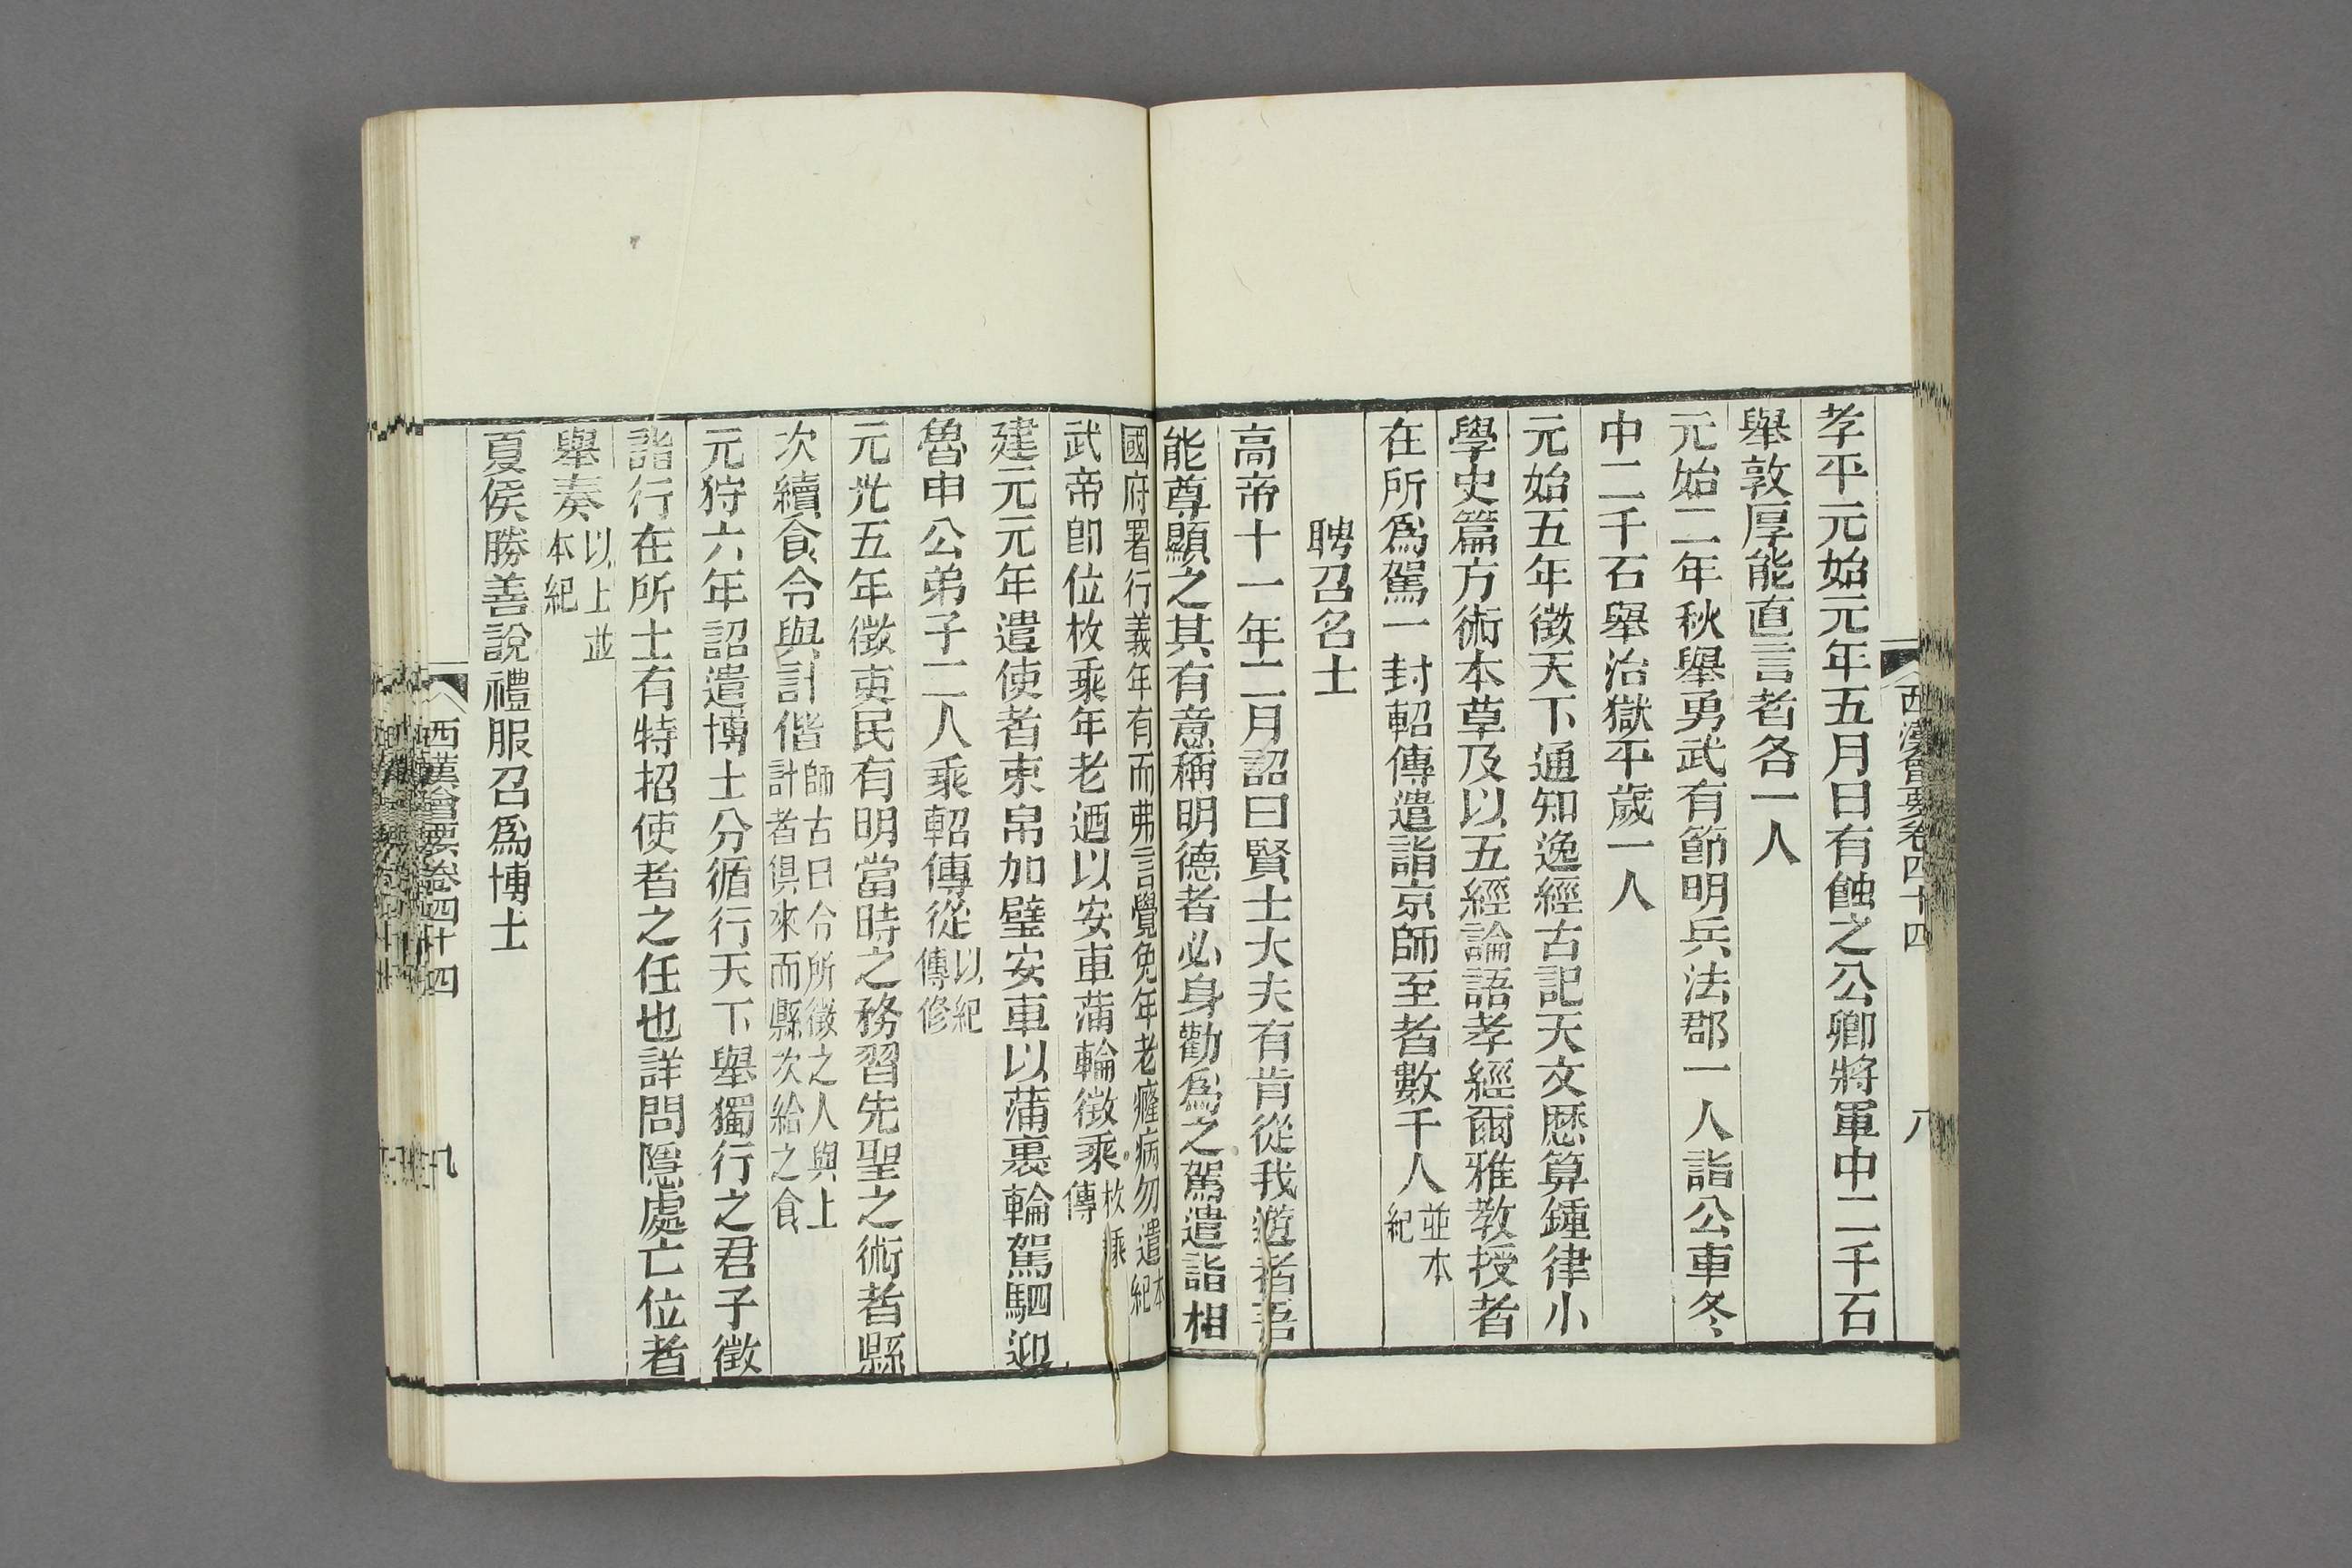 西漢會要卷四十四
八
孝平元始元年五月日有蝕之公卿將軍中二千石
舉敦厚能直言者各一人
元始二年秋舉勇武有節明兵法郡一人詣公車冬
中二千石舉治獄平歲一人
元始五年徵天下通知逸經古記天文厯算鍾律小
學史篇方術本草及以五經論語孝經爾雅教授者
在所爲駕一封軺傳遣詣京師至者數千人並本
紀
聘召名士
高帝十一年二月詔曰賢士大夫有肯從我遊者吾
能尊顯之其有意稱明德者必身勸爲之駕遣詣相
國府署行義年有而弗言覺免年老癃病勿遣本
紀
武帝卽位枚乘年老迺以安車蒲輪徵乘枚乘
傳
建元元年遣使者束帛加璧安車以蒲裹輪駕駟迎
魯申公弟子二人乘軺傳從以紀
傳修
元光五年徵吏民有明當時之務習先聖之術者縣
次續食令與計偕師古曰令所徵之人與上
計者俱來而縣次給之食
元狩六年詔遣博士分循行天下舉獨行之君子徵
詣行在所士有特招使者之任也詳問隱處亡位者
舉奏以上並
本紀
夏侯勝善說禮服召爲博士
西漢會要卷四十四
九